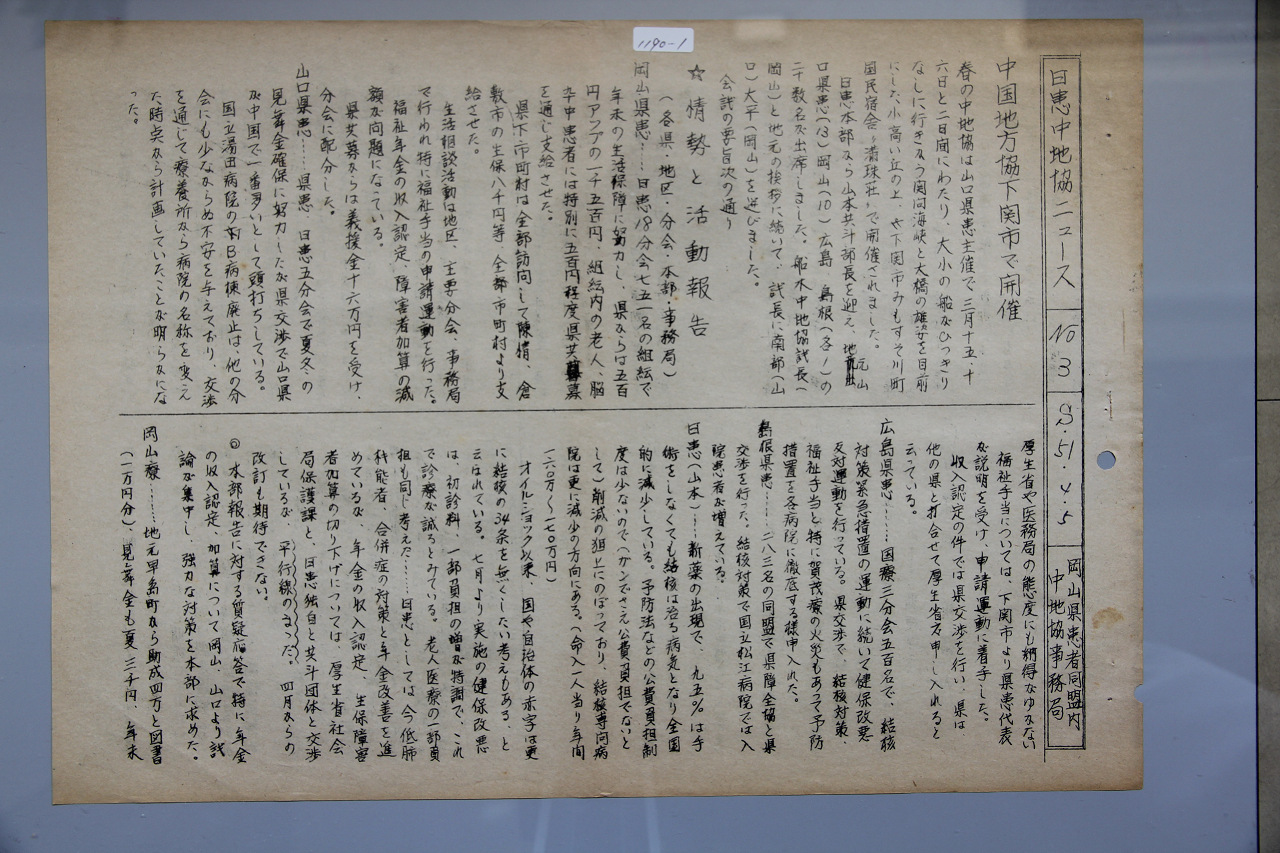 1190-1
日患中地協ニュース No 3 S.51.4.5 岡山県患者同盟内 中地協事務局
中国地方協下関市で開催
春の中地協は山口県患主催で三月十五、十
六日と二日間にわたり、大小の船がひっきり
なしに行きかう関門海峡と大橋の雄姿を目前
にした小高い丘の上、や下関市みもすそ川町
国民宿舎"満珠荘"で開催されました。
日患本部から山本共斗部長を迎え、地元山
口県患(13)岡山(10)広島、島根(各1)の
二十数名が出席しました。船木中地協議長(
岡山)と地元の挨拶に続いて、議長に南部(山
口)大平(岡山)を選びました。
会議の要旨次の通り
☆情勢と活動報告
(各県・地区・分会・本部・事務局)
岡山県患……日患18分会七五一名の組織で
年末の生活保障に努力し、県からは五百
円アップの一千五百円、組織内の老人、脳
卒中患者には特別に五百円程度県共募
を通じ支給させた。
県下市町村は全部訪問して陳情、倉
敷市の生保八千円等、全部市町村より支
給させた。
生活相談活動は地区、主要分会、事務局
で行われ特に福祉手当の申請運動を行った。
福祉年金の収入認定、障害者加算の減
額が問題になっている。
県共募からは義援金十六万円を受け、
分会に配分した。
山口県患……県患、日患五分会で夏冬の
見舞金確保に努力したが県交渉で山口県
が中国で一番多いとして頭打ちしている。
国立湯田病院の対B病棟廃止は他の分
会にも少なからぬ不安を与えており、交渉
を通じて療養所から病院の名称を変え
た時点から計画していたことが明らかにな
った。
厚生省や医務局の態度にも納得がゆかない
福祉手当については、下関市より県患代表
が説明を受け、申請運動に着手した。
収入認定の件では県交渉を行い、県は
他の県と打合せて厚生省え申し入れると
云っている。
広島県患……国療三分会五百名で、結核
対策緊急措置の運動に続いて健保改悪
反対運動を行っている。県交渉で、結核対策、
福祉手当と特に賀茂療の火災もあって予防
措置を各病院に徹底する様申入れた。
島根県患……二八三名の同盟で県障全協と県
交渉を行った。結核対策で国立松江病院では入
院患者が増えている。
日患(山本)……新薬の出現で、九五%は手
術をしなくても結核は治る病気となり全国
的に減少している。予防法などの公費負担制
度は少ないので(ガンでさえ公費負担でないと
して)削減の狙上にのぼっており、結核専門病
院は更に減少の方向にある。(命入一人当り年間
一六〇万〜一七〇万円)
オイルショック以来、国や自治体の赤字は更
に結核の34条を無くしたい考えもある、と
云はれている。七月より実施の健保改悪
は、初診料、一部負担の増が特調で、これ
で診療が減るとみている。老人医療の一部負
担も同じ考えだ……日患としては今低肺
機能者、合併症の対策と年金改善を進
めているが、年金の収入認定、生保障害
者加算の切り下げについては、厚生省社会
局保護課と、日患独自と共斗団体と交渉
しているが、平行線のまゝだ。四月からの
改訂も期待できない。
◎本部報告に対する質疑応答で特に年金
の収入認定、加算について岡山、山口より討
論が集中し、強力な対策を本部に求めた。
岡山療……地元早島町から助成四万と図書
(一万円分)、見舞金も夏、三千円、年末